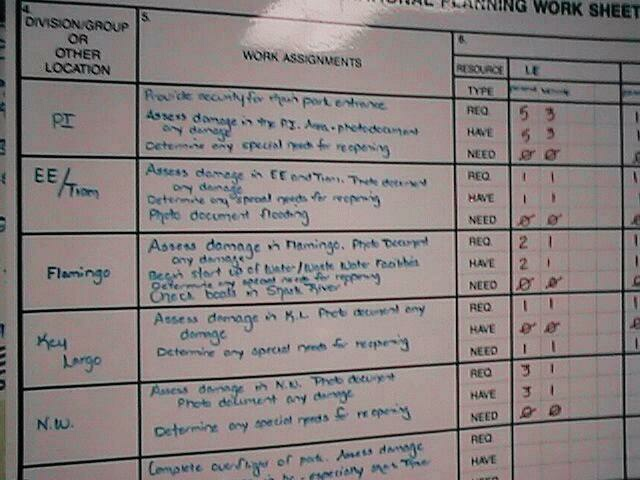 PLANNING WORK SHEET
4.
DIVISION/GROUP
OR
OTHER
LOCATION
5.
WORK ASSIGNMENTS
6.
RESOURCE LE
TYPE
PI
Provide security for main park entrance
Assess damage in the P.I. Area - photo document
any damage
Determine any special needs for reopening
REQ. 5 3
HAVE 5 3
NEED Ø Ø
EE/Tram
Assess damage in EE and Tram. Photo document
any damage
Determine any special needs for reopening
Photo document flooding
REQ. 1 1
HAVE 1 1
NEED Ø Ø
Flamingo
Assess damage in Flamingo. Photo Document
any damage
Begin start up of Water/Waste Water Facilities
Determine any special needs for reopening
Check boats in River
REQ. 2 1
HAVE 2 1
NEED Ø Ø
Key
Largo
Assess damage in K.L. Photo document any
damage
Determine any special needs for reopening
REQ. 1 1
HAVE Ø Ø
NEED 1 1
N.W.
Assess damage in N.W. Photo document
Photo document any damage
Determine any special needs for reopening
REQ. 3 1
HAVE 3 1
NEED Ø Ø
Complete overflight of park. Assess damage
especially
REQ.
HAVE
NEED